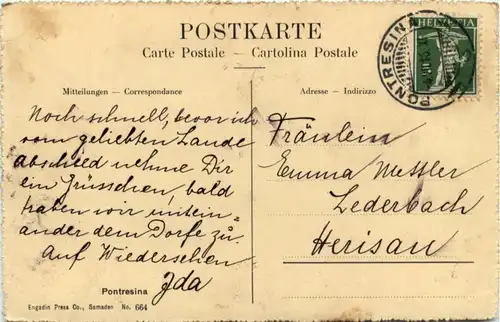 POSTKARTE
Carte Postale - Cartolina Postale
HELVETIA
PONTRESINA
Mitteilungen - Correspondance
Adresse - Indirizzo
Noch schnell, bevor ich
vom geliebten Lande
abschied nehme Dir
ein Grüsschen, bald
haben wir mitein=
ander dem Dorfe zu.
Auf Wiedersehen
Ida
Fräulein
Emma Mettler
Lederbach
Herisau
Pontresina
Engadin Press Co., Samaden No. 664